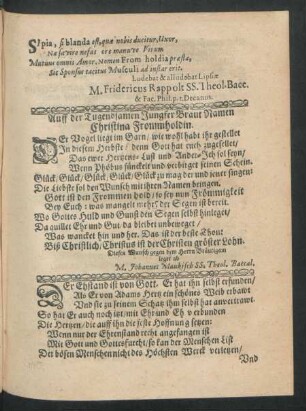 Sepia, si blanda est, quæ nobis ducitur, Uxor,
Mutuus omnis Amor. Nomen From holdia præstat,
Sit Sponsus tacitus Musculi ad instar erit.
Ludebat & alludebat Lipsiæ
M. Fridericus Rappolt SS. Theol. Bacc.
& Fac. Philos. p.t. Decanus.
Auff der Tugendsamen Jungfer Braut Namen
Christina Frommholdin.
Er Vogel liegt im Garn, wie wohl habt ihr gestellet
In diesem Herbste / denn Gott hat euch zugesellet /
Das ewer Hertzens-Lust und Ander-Ich sol seyn /
Wenn Phöbus füncket und verbirget seinen Schein.
Glück, Glück / Glück, Glück, Glück zu mag der und jener singen!
Die Liebste sol den Wunsch mit ihren Namen bringen.
Gott ist den Frommen hold / so sey nun Frömmigkeit
Bey Euch: was mangelt mehr? der Segen ist bereit.
Wo Gottes Huld und Gunst den Segen selbst hinleget /
Da quillet Ehr und Gut, da bleibet unbeweget /
Was wancket hin und her. Das ist der beste Thon:
Bis Christlich, Christus ist der Christen gröster Lohn.
Diesen Wunsch gegen den Herrn Bräutigam
legte ab
M. Johannes Maukisch SS. Theol. Baccal.
Er Ehstand ist von Gott. Er hat ihn selbst erfunden /
Als Er von Adams Hertz ein schönes Weib erbawt
Und sie zu seinem Schatz ihm selbst hat anvertrawt.
So hat Er auch noch itzt / mit Ehr und Eh verbunden
Die Hertzen / die auff ihn die feste Hoffnung setzen:
Wenn nur der Ehrenstand recht angefangen ist
Mit Gott und Gottesfurcht / so kan der Menschen List
Der bösen Menschen nicht des Höchsten Werck verletzen /
Und